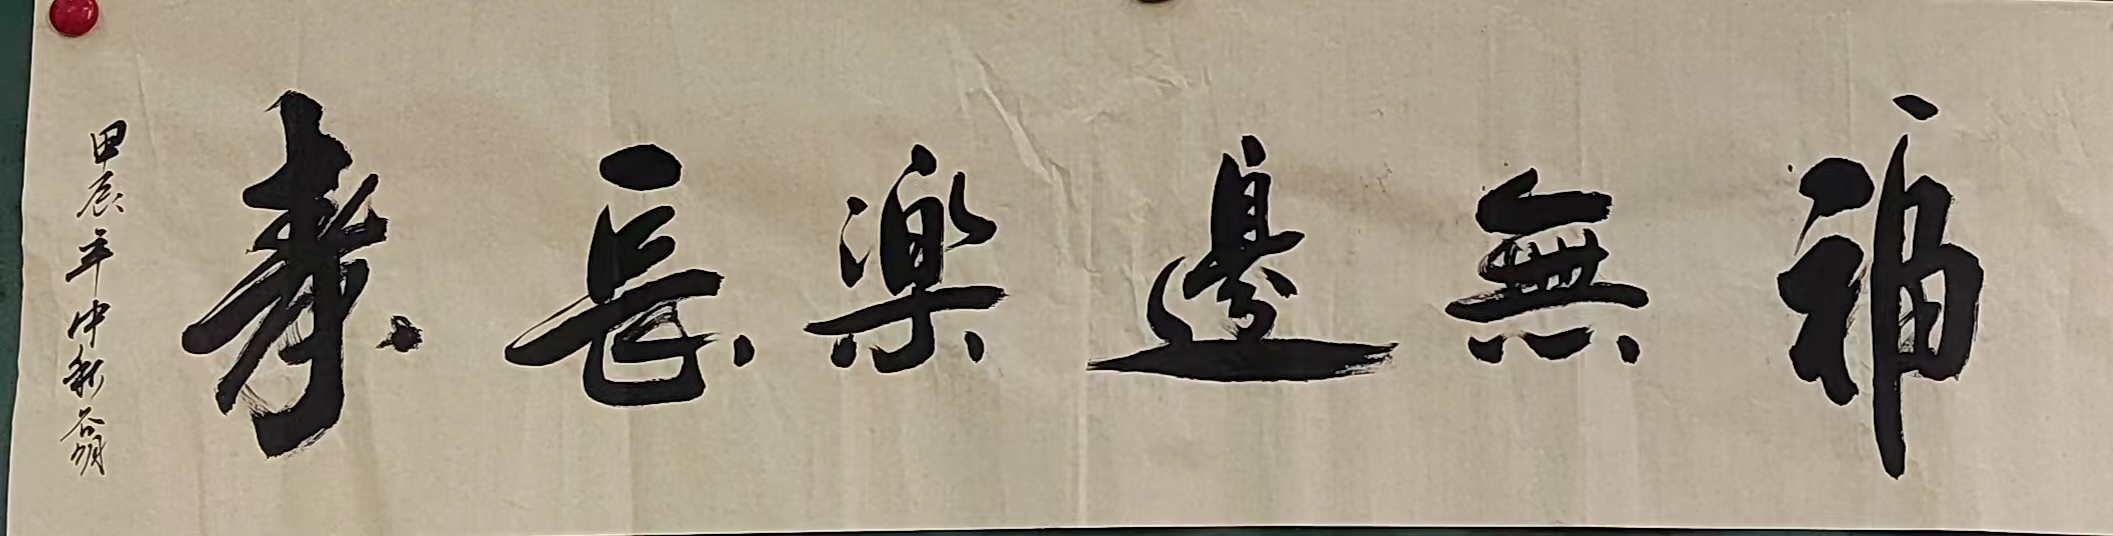 福無邊樂長壽
甲辰年中秋谷明